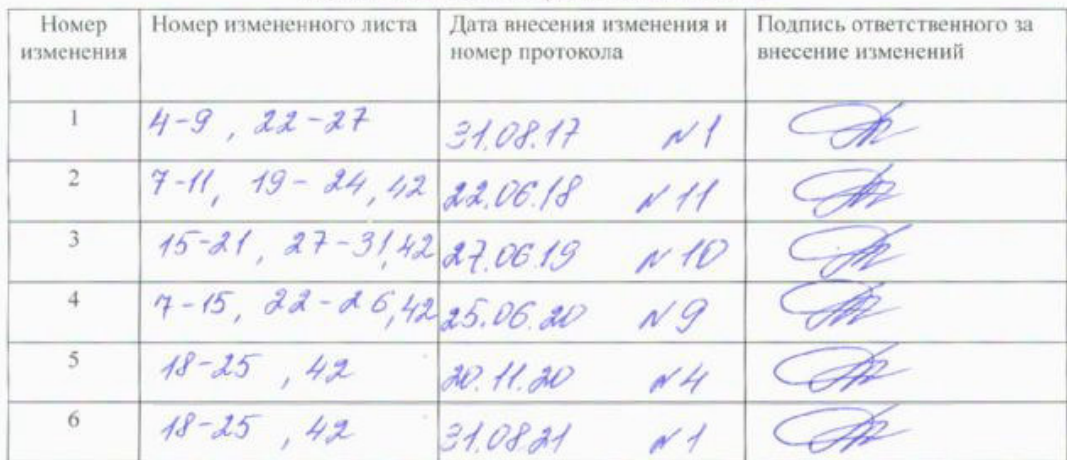 Номер изменения | Номер измененного листа | Дата внесения изменения и номер протокола | Подпись ответственного за внесение изменений
1 | 4-9, 22-27 | 31.08.17 №1
2 | 7-11, 19-24, 42 | 22.06.18 №11
3 | 15-21, 27-31, 42 | 27.06.19 №10
4 | 7-15, 22-26, 42 | 25.06.20 №9
5 | 18-25, 42 | 20.11.20 №4
6 | 18-25, 42 | 31.08.21 №1